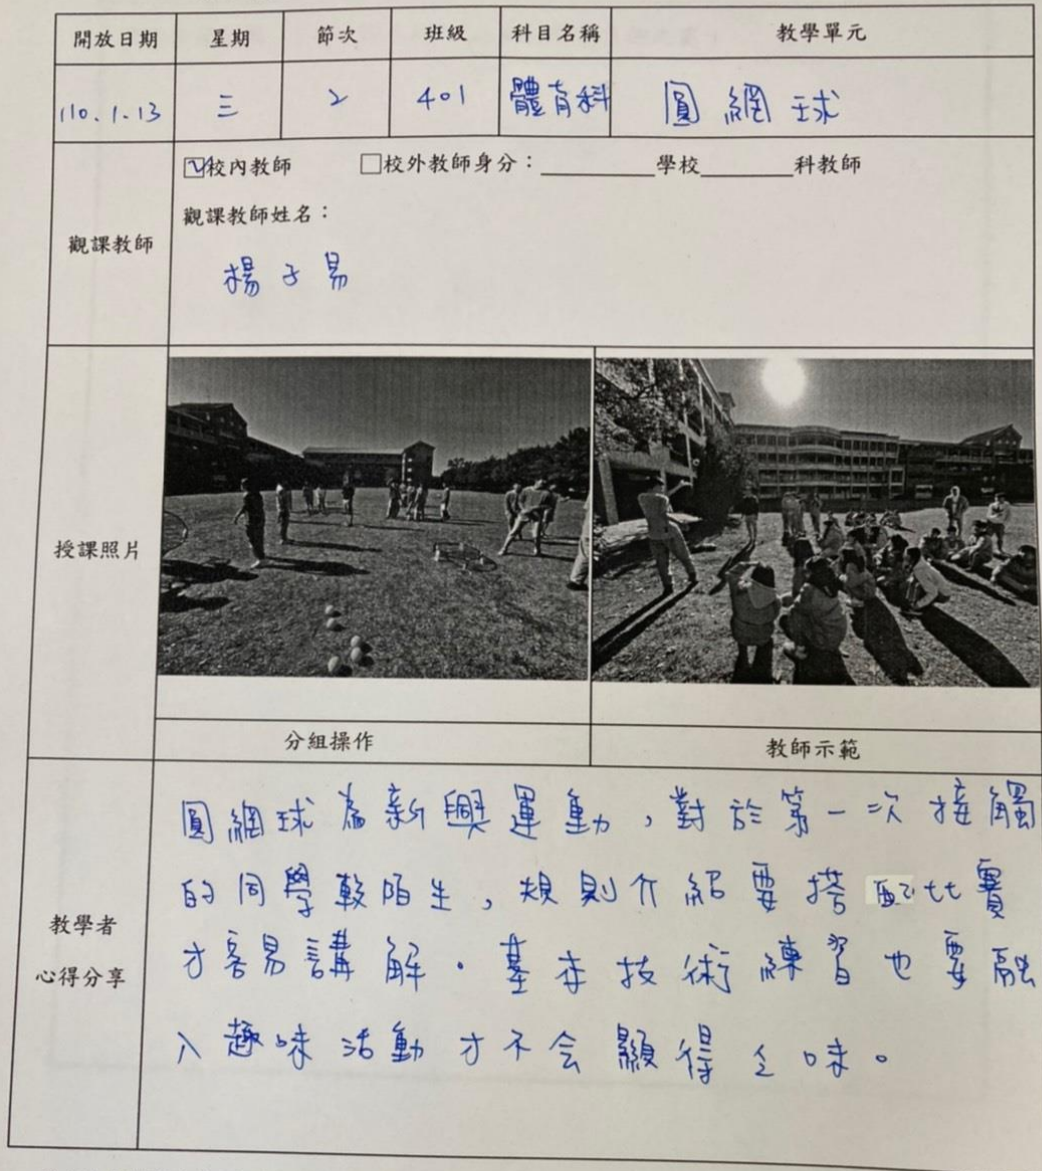 開放日期 星期 節次 班級 科目名稱 教學單元
110.1.13 三 2 401 體育科 圓網球
☑校內教師 □校外教師身分:________學校________科教師
觀課教師姓名:
觀課教師
楊子易
授課照片
分組操作 教師示範
圓網球為新興運動,對於第一次接觸
的同學較陌生,規則介紹要搭配比賽
教學者
心得分享
才容易講解。基本技術練習也要融
入趣味活動才不会顯得乏味。